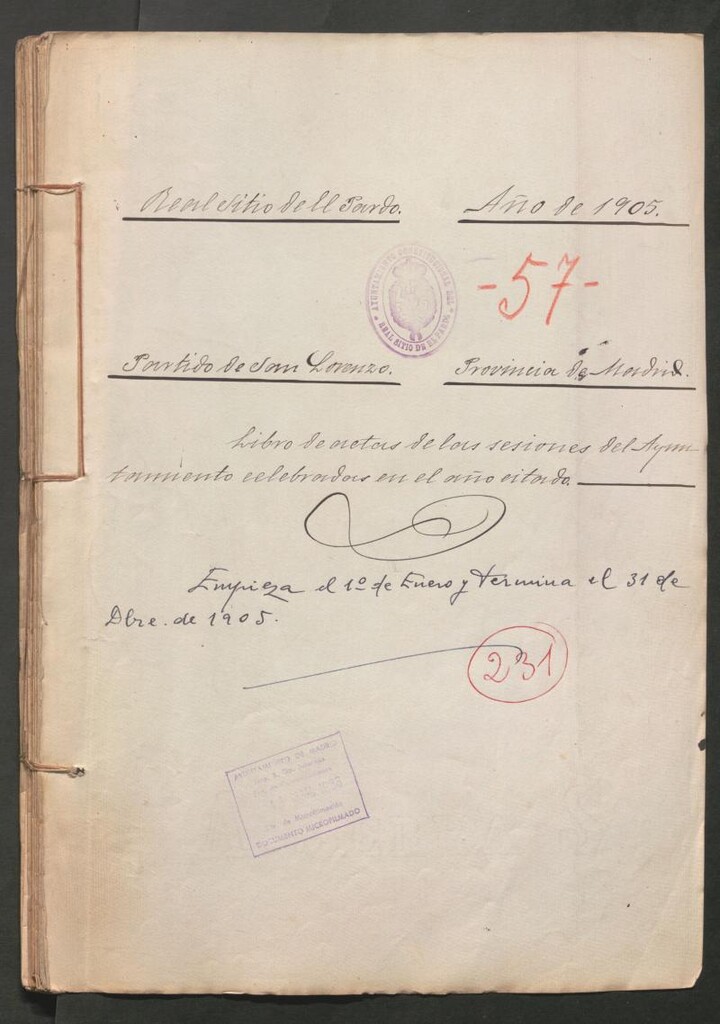 Real Sitio de El Pardo. Año de 1905.
AYUNTAMIENTO CONSTITUCIONAL DEL REAL SITIO DE EL PARDO
-57-
Partido de San Lorenzo. Provincia de Madrid.
Libro de actas de las sesiones del Ayun-
tamiento celebradas en el año citado.
Empieza el 1º de Enero y termina el 31 de
Dbre. de 1905.
231
AYUNTAMIENTO DE MADRID
de Microfilmación
DOCUMENTO MICROFILMADO